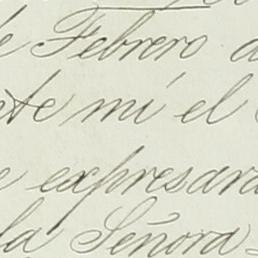 de Febrero d
nte mí el
e expresará
la Señora